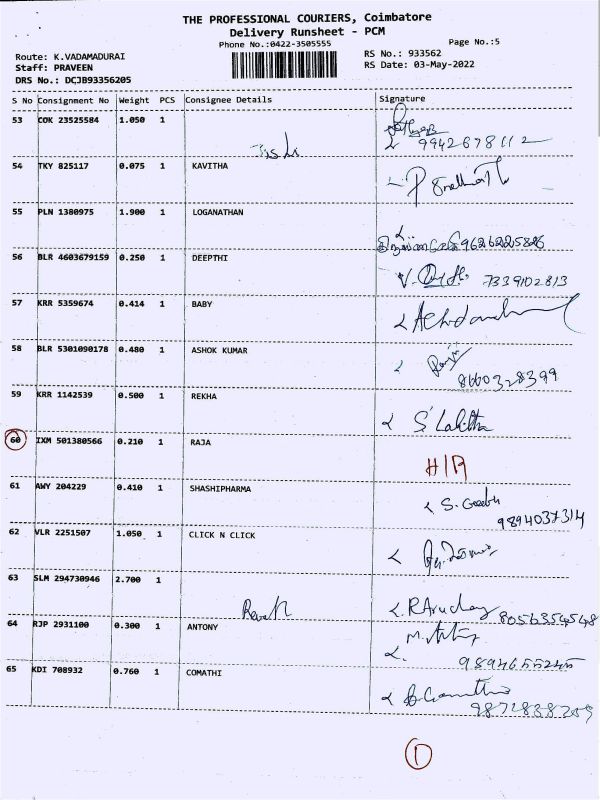 THE PROFESSIONAL COURIERS, Coimbatore
Delivery Runsheet - PCM
Phone No.:0422-3505555
Page No.:5
Route: K.VADAMADURAI
RS No.: 933562
Staff: PRAVEEN
RS Date: 03-May-2022
DRS No.: DCJB93356205
S No Consignment No Weight PCS Consignee Details Signature
53 COK 23525584 1.050 1
9942678112
54 TKY 825117 0.075 1 KAVITHA
55 PLN 1380975 1.900 1 LOGANATHAN
9626225826
56 BLR 4603679159 0.250 1 DEEPTHI
7339102813
57 KRR 5359674 0.414 1 BABY
58 BLR 5301090178 0.480 1 ASHOK KUMAR
8660328399
59 KRR 1142539 0.500 1 REKHA
S. Lalitha
60 IXM 501380566 0.210 1 RAJA
61 AWY 204229 0.410 1 SHASHIPHARMA
9894037314
62 VLR 2251507 1.050 1 CLICK N CLICK
63 SLM 294730946 2.700 1
8056354548
64 RJP 2931100 0.300 1 ANTONY
9894655245
65 KDI 708932 0.760 1 COMATHI
1